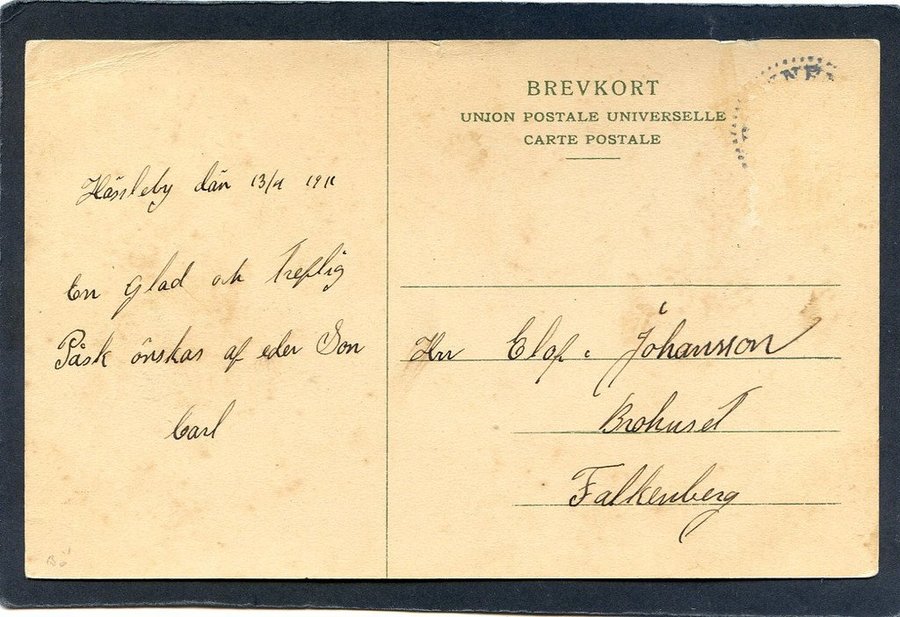 BREVKORT
UNION POSTALE UNIVERSELLE
CARTE POSTALE
Hässleby dän 13/4 1911
En glad och Treflig
Påsk önskas af eder Son
Carl
Hrr Elof Johansson
Brohuset
Falkenberg